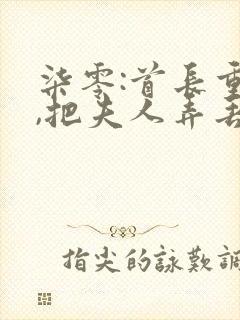 柒零:首長重
,把夫人弄丟
指尖的詠歎調